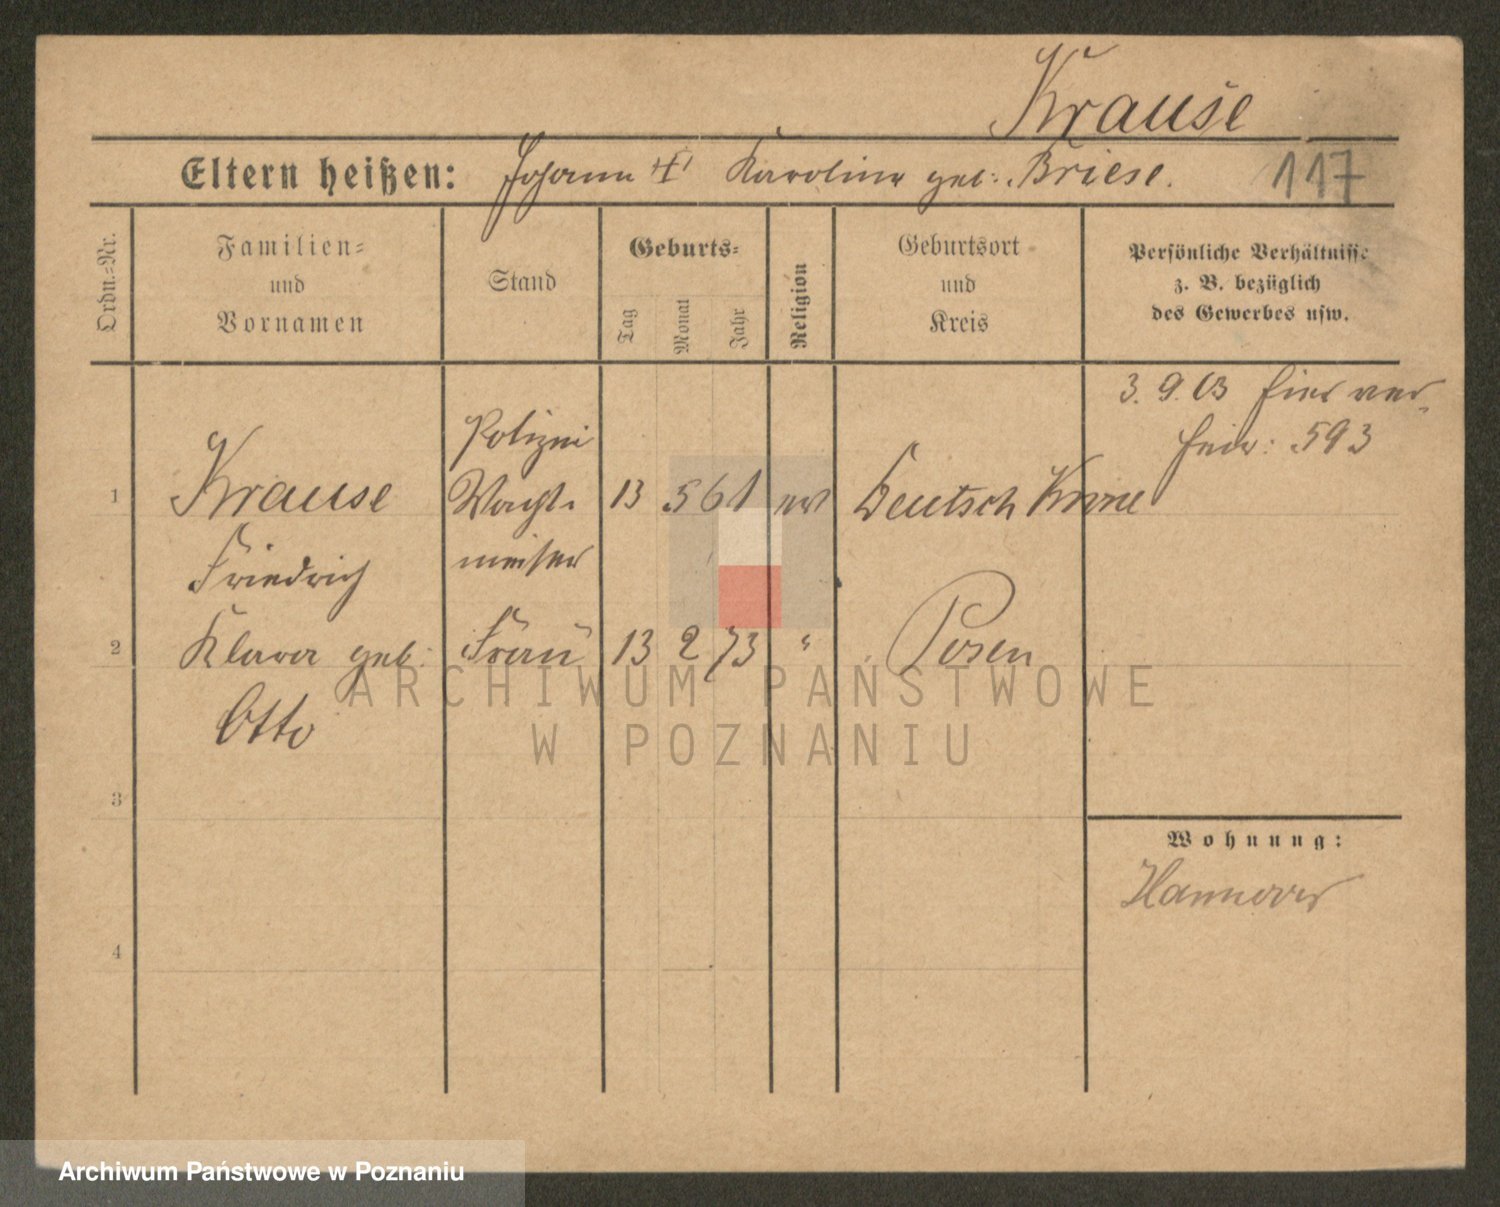 Krause
Eltern heißen: Johann Karoline geb: Briese.
117
Ordn.-Nr.
Familien-
und
Vornamen
Stand
Geburts-
Tag
Monat
Jahr
Religion
Geburtsort
und
Kreis
Persönliche Verhältnisse
z. B. bezüglich
des Gewerbes usw.
3. 9. 03 hier ver-
heir: 593
1
Krause
Friedrich
Polizei
Wacht-
meister
13 5 61 ev Deutsch Krone
2
Klara geb:
Otto
Frau 13 2 73 " Posen
3
4
Wohnung:
Hannover
ARCHIWUM PAŃSTWOWE
W POZNANIU
Archiwum Państwowe w Poznaniu